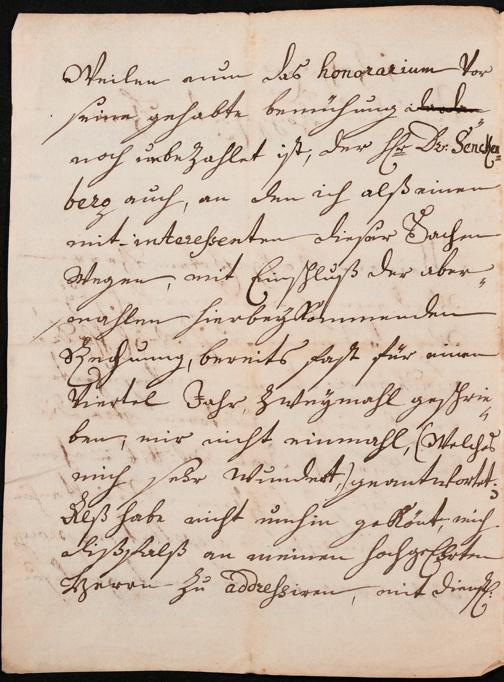 Weilen nun das honorarium vor
seine gehabte bemühung
noch unbezahlet ist, der Hr. Dr: Sencken=
berg auch, an den ich alß einen
mit-interessenten dieser Sachen
wegen, mit Einschluß der aber=
mahlen hierbey kommenden
Rechnung, bereits fast für einen
Viertel Jahr, zweymahl geschrie=
ben, mir nicht einmahl, (welches
mich sehr wundert,) geantwortet.
Alß habe nicht umhin gekönt mich
dißfalß an meinen hochgeehrten
Herrn zu addressiren, mit dienstl: